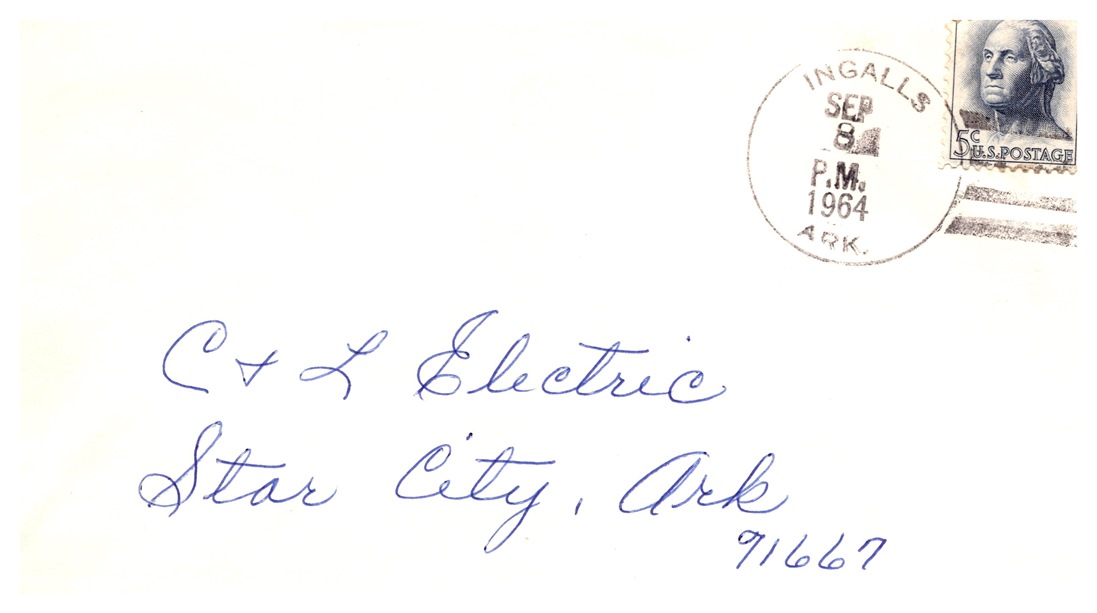 INGALLS
SEP
8
P.M.
1964
ARK.
5c
U.S. POSTAGE
C + L Electric
Star City, Ark
71667